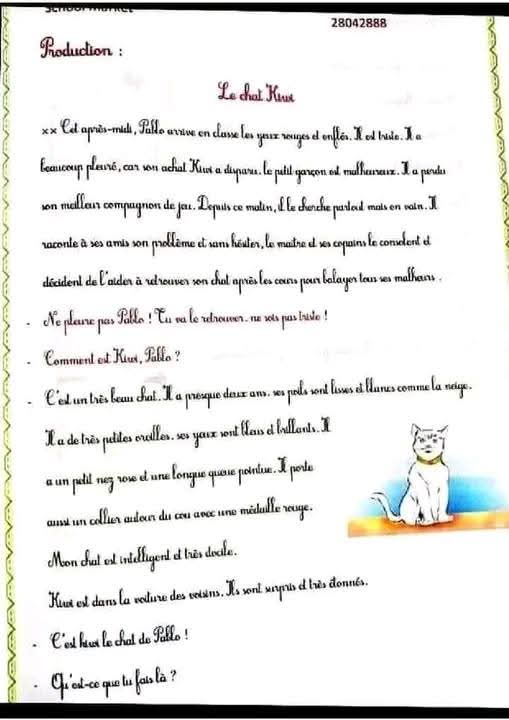 School market
28042888
Production :
Le chat Kiwi
xx Cet après-midi, Pablo arrive en classe les yeux rouges et enflés. Il est triste. Il a
beaucoup pleuré, car son achat Kiwi a disparu. le petit garçon est malheureux. Il a perdu
son meilleur compagnon de jeu. Depuis ce matin, il le cherche partout mais en vain. Il
raconte à ses amis son problème et sans hésiter, le maitre et ses copains le consolent et
décident de l'aider à retrouver son chat après les cours pour balayer tous ses malheurs.
- Ne pleure pas Pablo ! Tu va le retrouver. ne sois pas triste !
- Comment est Kiwi, Pablo ?
- C'est un très beau chat. Il a presque deux ans. ses poils sont lisses et blancs comme la neige.
Il a de très petites oreilles. ses yeux sont bleus et brillants. Il
a un petit nez rose et une longue queue pointue. Il porte
aussi un collier autour du cou avec une médaille rouge.
Mon chat est intelligent et très docile.
Kiwi est dans la voiture des voisins. Ils sont surpris et très étonnés.
- C'est kiwi le chat de Pablo !
- Qu'est-ce que tu fais là ?